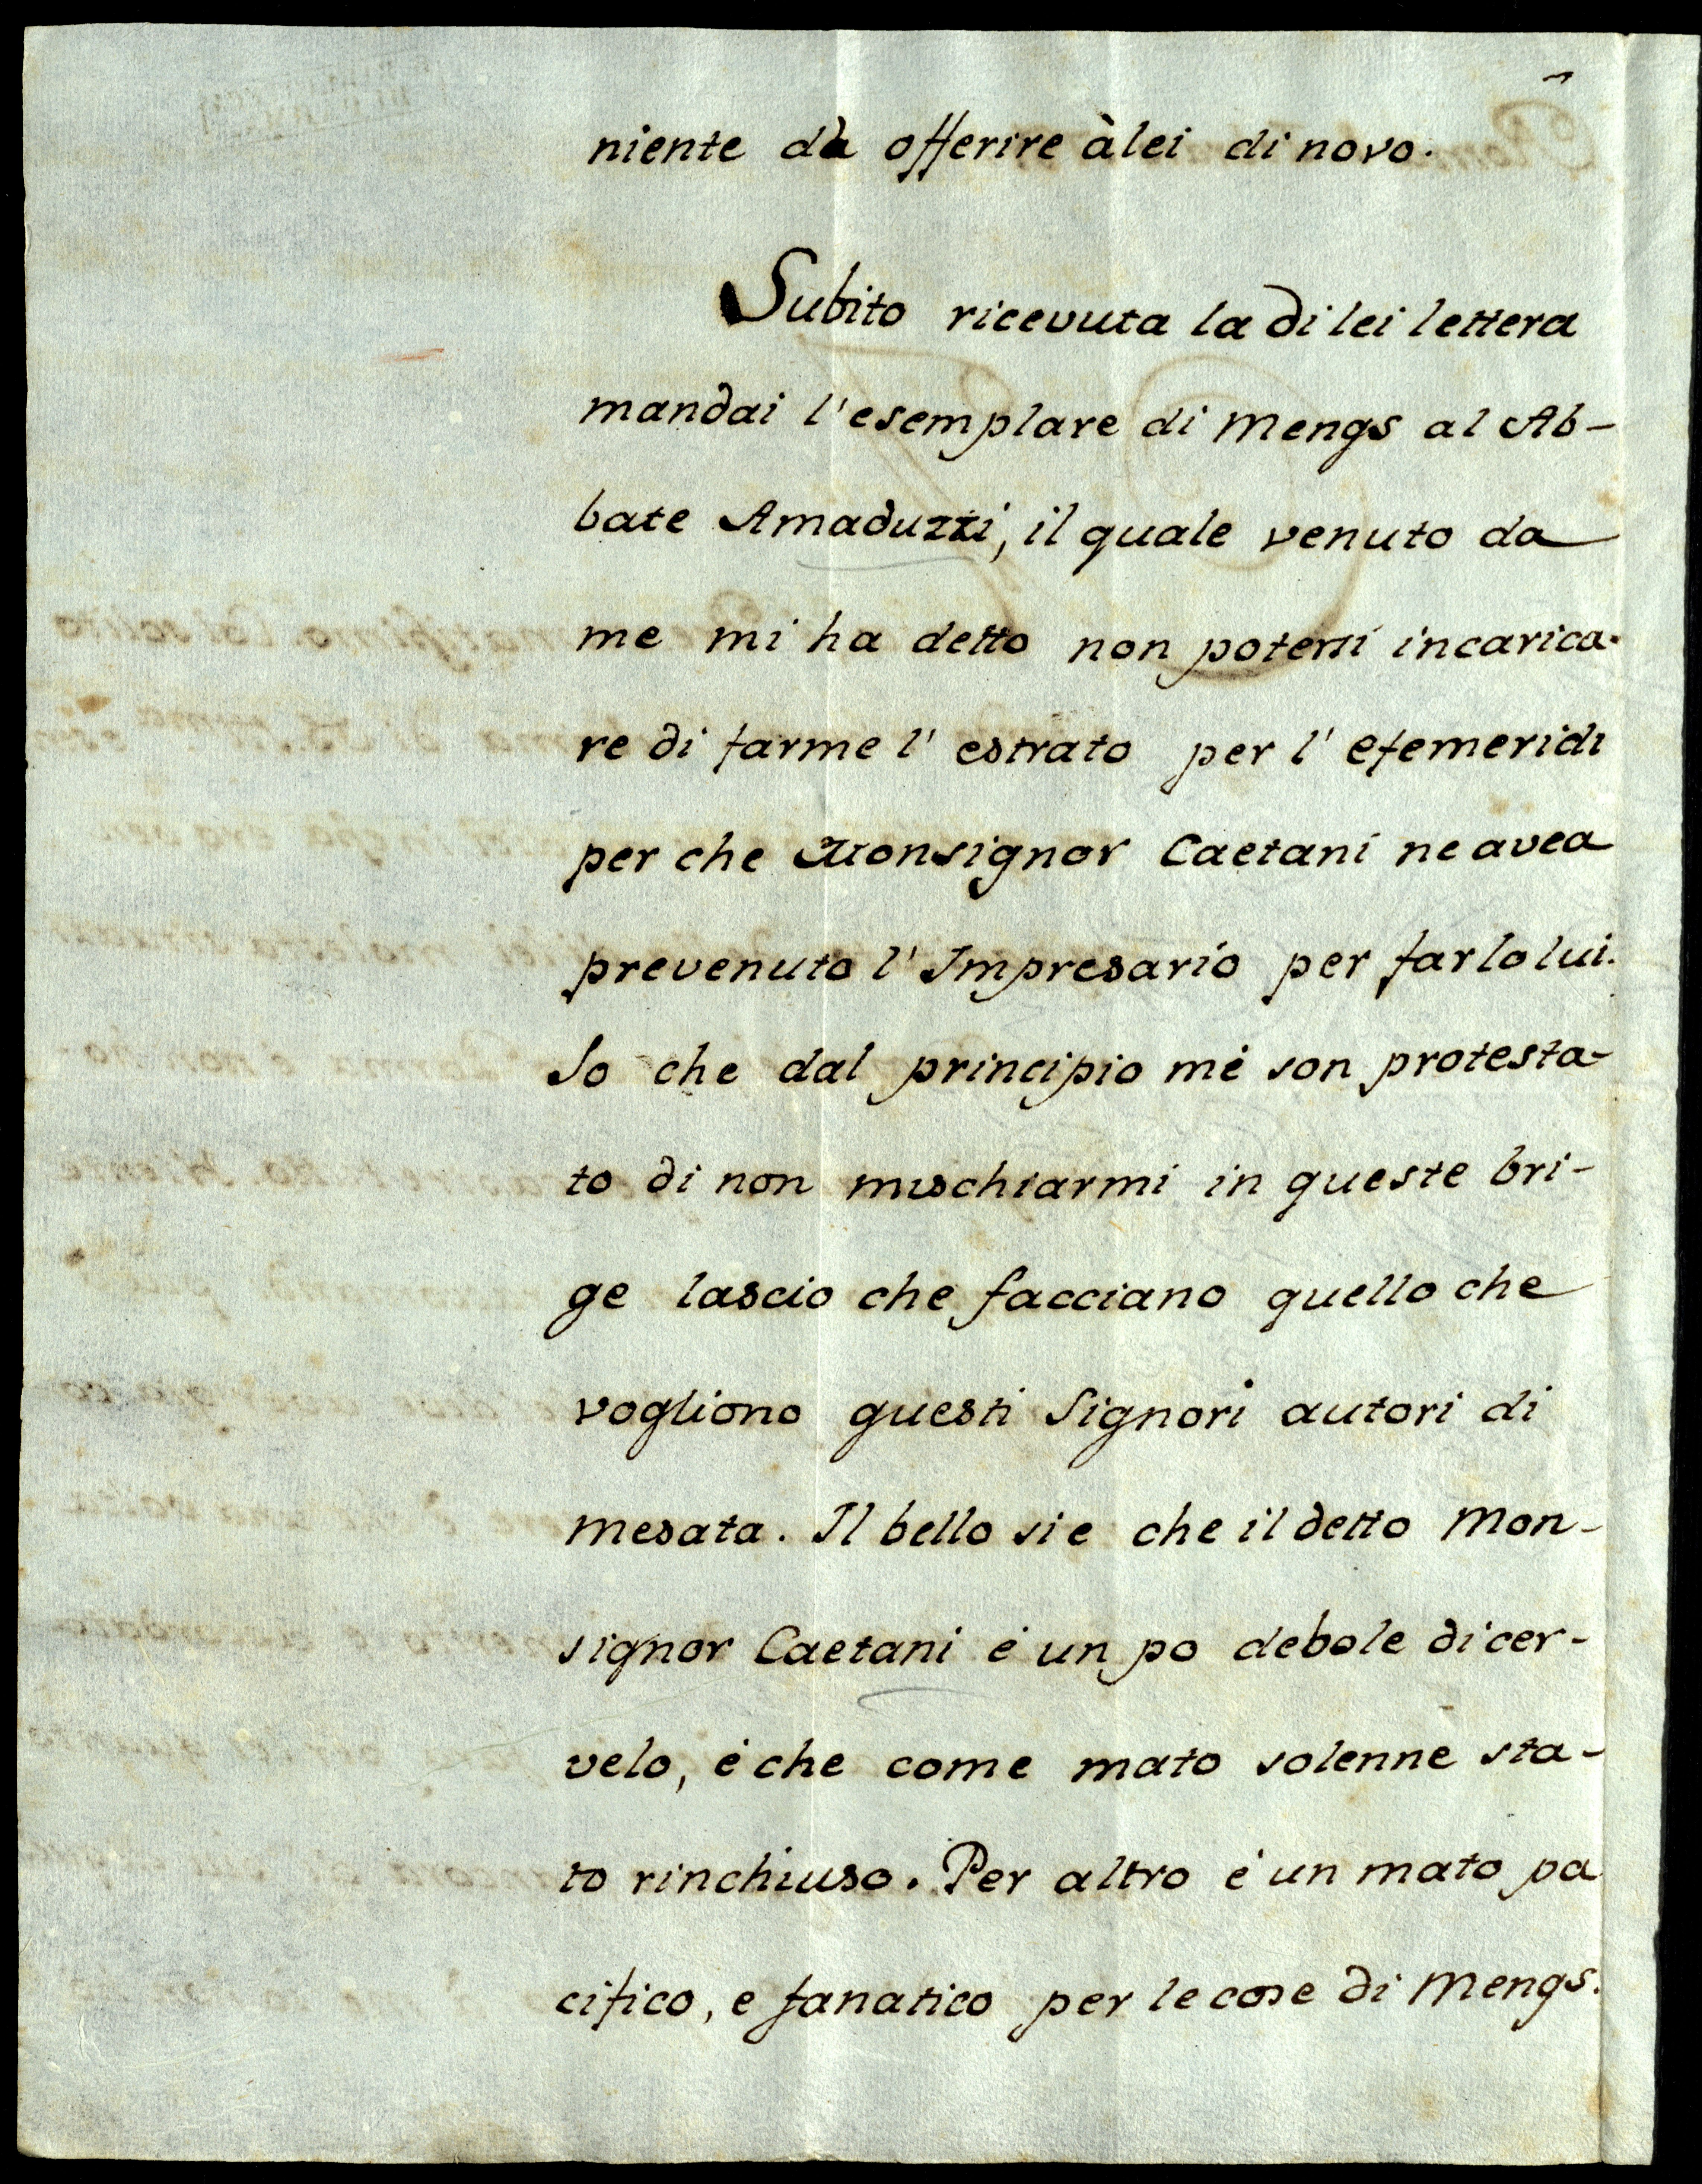 niente da offerire à lei di novo.
Subito ricevuta la di lei lettera
mandai l'esemplare di Mengs al Ab-
bate Amaduzzi, il quale venuto da
me mi ha detto non potersi incarica-
re di farme l' estrato per l' efemeridi
per che Monsignor Caetani ne avea
prevenuto l' Impresario per farlo lui.
Io che dal principio mi son protesta-
to di non mischiarmi in queste bri-
ge lascio che facciano quello che
vogliono questi Signori autori di
mesata. Il bello si e che il detto Mon-
signor Caetani é un po debole di cer-
velo, é che come mato solenne sta-
to rinchiuso. Per altro é un mato pa
cifico, e fanatico per le cose di Mengs.